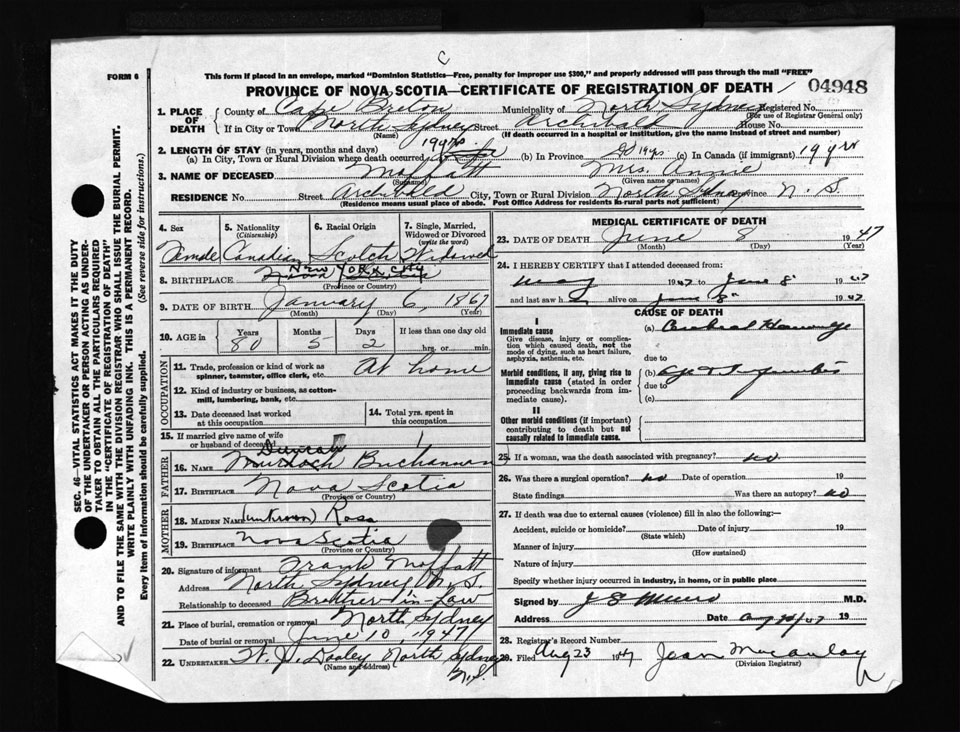 C
FORM 6
This form if placed in an envelope, marked "Dominion Statistics—Free, penalty for improper use $300," and properly addressed will pass through the mail "FREE"
PROVINCE OF NOVA SCOTIA—CERTIFICATE OF REGISTRATION OF DEATH 04948
1. PLACE OF DEATH
County of Cape Breton Municipality of North Sydney Registered No.
(For use of Registrar General only)
If in City or Town North Sydney Street Archibald House No.
(Name) (If death occurred in a hospital or institution, give the name instead of street and number)
2. LENGTH OF STAY (in years, months and days)
(a) In City, Town or Rural Division where death occurred 19 yrs (b) In Province 19 yrs (c) In Canada (if immigrant) 19 yrs
3. NAME OF DECEASED Moffatt Mrs. Annie
(Surname) (Given name or names)
RESIDENCE No. Street Archibald City, Town or Rural Division North Sydney Province N. S.
(Residence means usual place of abode. Post Office Address for residents in rural parts not sufficient)
4. Sex 5. Nationality (Citizenship) 6. Racial Origin 7. Single, Married, Widowed or Divorced (write the word)
Female Canadian Scotch Widowed
New York City
8. BIRTHPLACE
(Province or Country)
9. DATE OF BIRTH January 6, 1867
(Month) (Day) (Year)
10. AGE in Years Months Days If less than one day old
80 5 2 hrs. or min.
OCCUPATION
11. Trade, profession or kind of work as spinner, teamster, office clerk, etc. At home
12. Kind of industry or business, as cotton-mill, lumbering, bank, etc.
13. Date deceased last worked at this occupation 14. Total yrs. spent in this occupation
15. If married give name of wife or husband of deceased
FATHER
Duncan
16. NAME Murdoch Buchannan
17. BIRTHPLACE Nova Scotia
(Province or Country)
MOTHER
18. MAIDEN NAME (unknown) Rosa
19. BIRTHPLACE Nova Scotia
(Province or Country)
20. Signature of informant Frank Moffatt
Address North Sydney N. S.
Relationship to deceased Brother-in-law
21. Place of burial, cremation or removal North Sydney
Date of burial or removal June 10, 1947
22. UNDERTAKER W. J. Dooley North Sydney N.S.
(Name and address)
MEDICAL CERTIFICATE OF DEATH
23. DATE OF DEATH June 8 1947
(Month) (Day) (Year)
24. I HEREBY CERTIFY that I attended deceased from:
May 1947 to June 8 1947
and last saw h alive on June 8 1947
CAUSE OF DEATH
I
Immediate cause (a) Cerebral Hemorrhage
Give disease, injury or complication which caused death, not the mode of dying, such as heart failure, asphyxia, asthenia, etc.
due to
Morbid conditions, if any, giving rise to immediate cause (stated in order proceeding backwards from immediate cause).
(b)
due to
(c)
II
Other morbid conditions (if important) contributing to death but not causally related to immediate cause.
25. If a woman, was the death associated with pregnancy? no
26. Was there a surgical operation? no Date of operation 19
State findings Was there an autopsy? no
27. If death was due to external causes (violence) fill in also the following:
Accident, suicide or homicide? Date of injury 19
(State which)
Manner of injury
(How sustained)
Nature of injury
Specify whether injury occurred in industry, in home, or in public place
Signed by J S Munro M.D.
Address Date Aug 47 19
28. Registrar's Record Number
29. Filed Aug 23 1947 Jean Macaulay
(Division Registrar)
SEC. 46—VITAL STATISTICS ACT MAKES IT THE DUTY
OF THE UNDERTAKER OR PERSON ACTING AS UNDER-
TAKER TO OBTAIN ALL THE PARTICULARS REQUIRED
IN THE "CERTIFICATE OF REGISTRATION OF DEATH"
AND TO FILE THE SAME WITH THE DIVISION REGISTRAR WHO SHALL ISSUE THE BURIAL PERMIT.
WRITE PLAINLY WITH UNFADING INK. THIS IS A PERMANENT RECORD.
Every item of information should be carefully supplied. (See reverse side for instructions.)